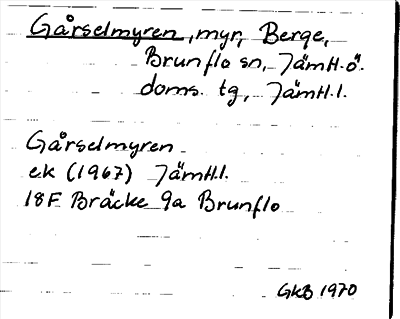 Gårselmyren, myr, Berge,
Brunflo sn, Jämtl. ö.
doms. tg, Jämtl. l.
Gårselmyren
ek (1967) Jämtl. l.
18F Bräcke 9a Brunflo
GKB 1970